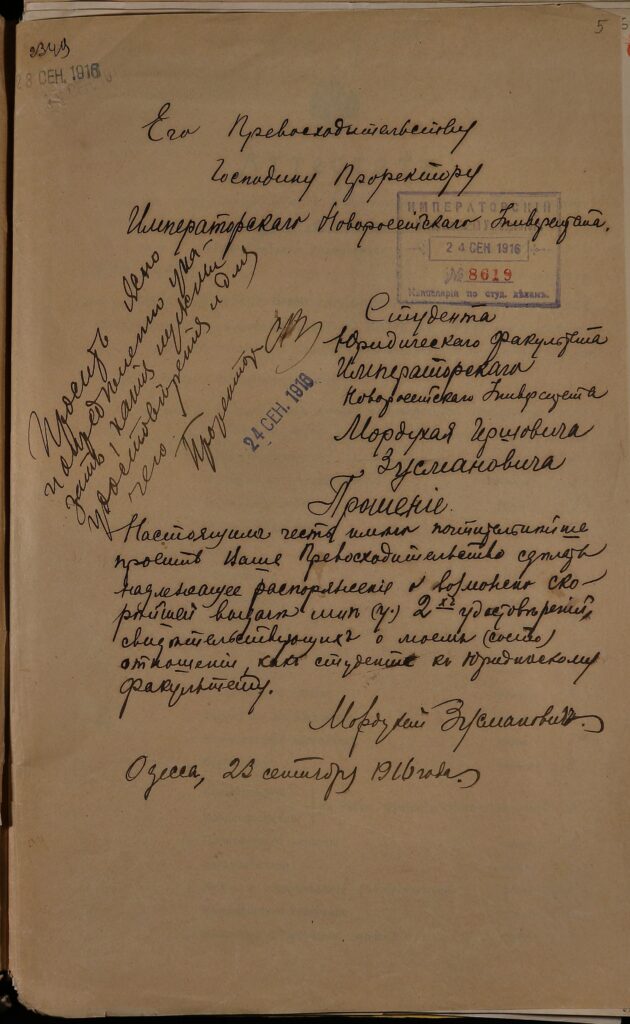 2343
5
28 СЕН. 1916
Его Превосходительству
Господину Проректору
Императорскаго Новороссійскаго Университета.
ИМПЕРАТОРСКІЙ
24 СЕН 1916
№ 8619
Канцелярія по студ. дѣламъ.
Просить ясно
и опредѣленно ука-
зать, какія нужны
удостовѣренія и для
чего
Проректоръ
24 СЕН. 1916
Студента
Юридическаго Факультета
Императорскаго
Новороссійскаго Университета
Мордухая Иршовича
Зусмановича
Прошеніе.
Настоящимъ честь имѣю почтительнѣйше
просить Ваше Превосходительство сдѣлать
надлежащее распоряженіе о возможно ско-
рѣйшей выдачѣ мнѣ 2хъ удостовѣреній,
свидѣтельствующихъ о моемъ
отношеніи, какъ студента къ Юридическому
факультету.
Мордухай Зусмановичъ.
Одесса, 23 сентября 1916 года.